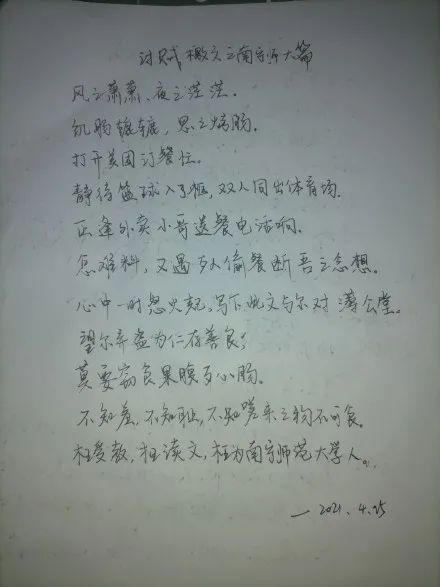 讨贼檄文之南宁师大篇
风之萧萧、夜之茫茫。
饥肠辘辘,思之烤肠。
打开美团订餐忙。
静待篮球入了框,双人同出体育场。
正逢外卖小哥送餐电话响。
怎难料,又遇歹人偷餐断吾之念想。
心中一时怒火起,写下此文与尔对薄公堂。
望尔弃盗为仁存善良;
莫要窃食果腹歹心肠。
不知羞,不知耻,不知嗟来之物不可食。
枉受教,枉读文,枉为南宁师范大学人。
—2021.4.25